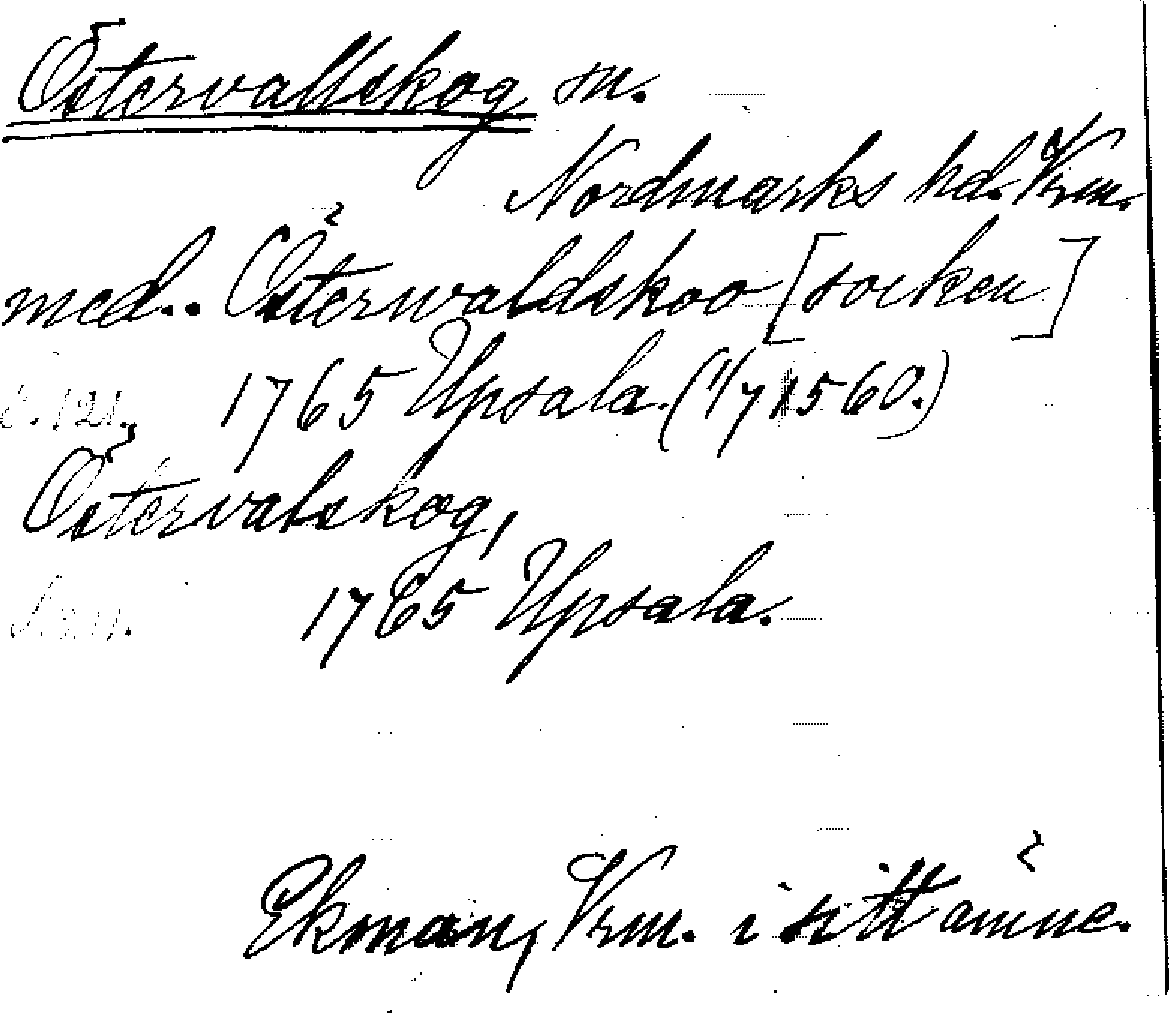 Östervallskog sn.
Nordmarks hd. Vrm.
med.. Österwaldskoo [socken]
s. 121. 1765 Upsala. (1/7 1560.)
Östervalskog,
1765 Upsala.
Ekman, Vrm. i sitt ämne.